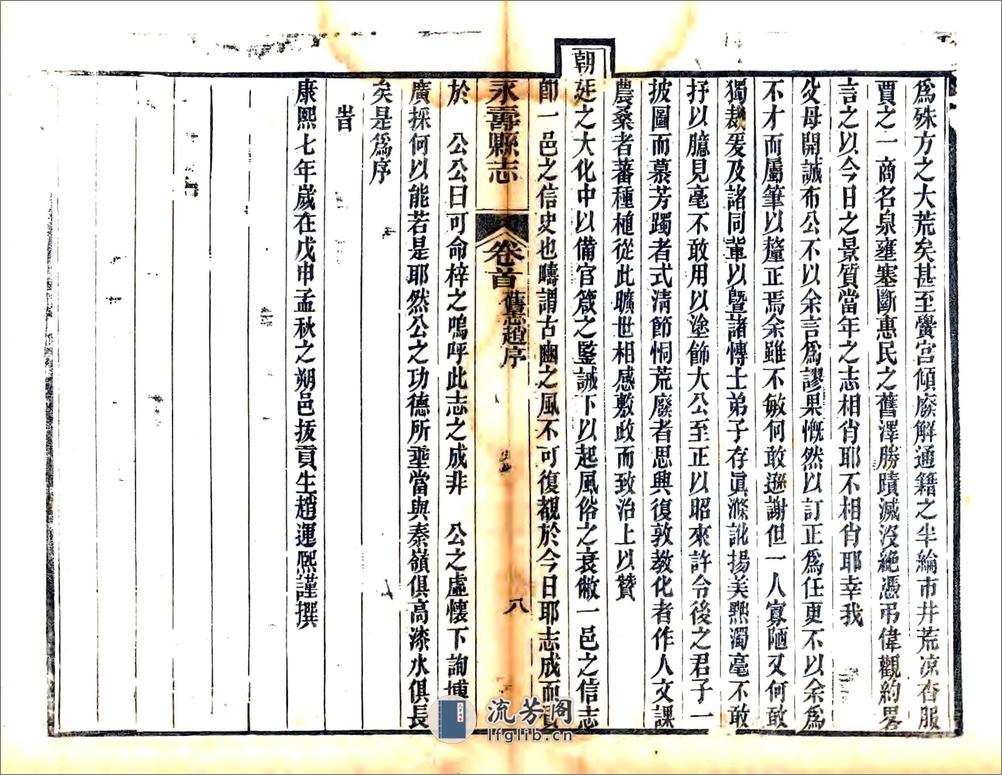 為殊方之大荒矣甚至黌宮傾廢解通籍之半綸市井荒凉杳服
賈之一商名泉壅塞斷惠民之舊澤勝蹟滅沒絶憑弔偉觀約畧
言之以今日之景質當年之志相肖耶不相肖耶幸我
父母開誠布公不以余言為謬果慨然以訂正為任更不以余為
不才而屬筆以釐正焉余雖不敏何敢遜謝但一人寡陋又何敢
獨裁爰及諸同輩以暨諸愽士弟子存眞滌訛揚美㸃濁毫不敢
抒以臆見毫不敢用以塗飾大公至正以昭來許令後之君子一
披圖而慕芳躅者式清節恫荒廢者思興復敦教化者作人文課
農桑者蕃種植從此曠世相感敷政而致治上以贊
朝廷之大化中以備官箴之鍳誡下以起風俗之衰敝一邑之信志
卽一邑之信史也疇謂古豳之風不可復覩於今日耶志成而
永壽縣志
卷首
舊志趙序
八
於 公公曰可命梓之嗚呼此志之成非 公之虛懷下詢博
廣採何以能若是耶然公之功德所垂當與秦嶺俱高漆水俱長
矣是為序
旹
康熙七年歲在戊申孟秋之朔邑拔貢生趙運熙謹撰
流芳阁
lfglib.cn